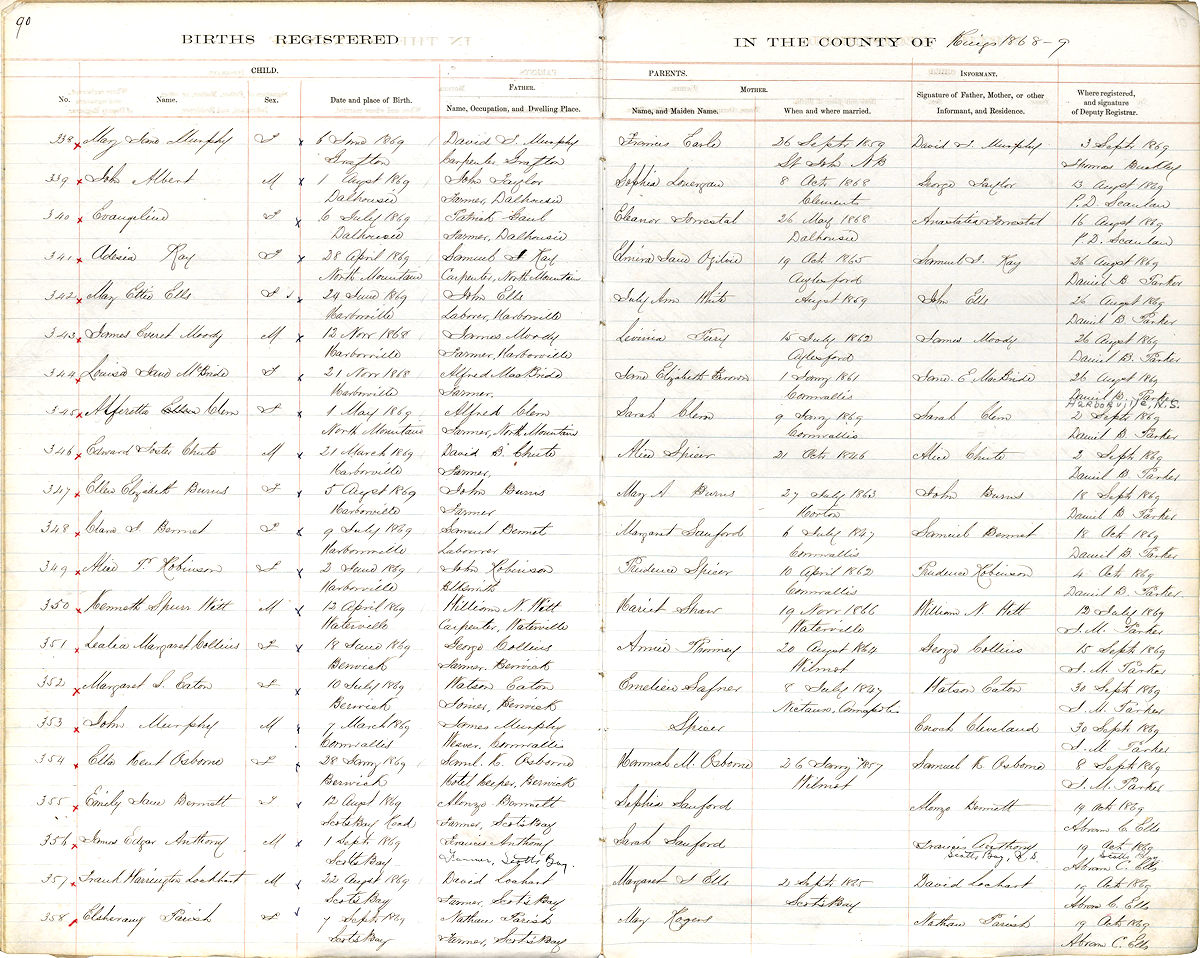 90
BIRTHS REGISTERED
IN THE COUNTY OF Kings 1868-9
CHILD.
PARENTS.
No. Name. Sex. Date and place of Birth.
FATHER.
Name, Occupation, and Dwelling Place.
MOTHER.
Name, and Maiden Name. When and where married.
INFORMANT.
Signature of Father, Mother, or other
Informant, and Residence.
Where registered,
and signature
of Deputy Registrar.
338 x Mary Jane Murphy F x 6 June 1869 David J. Murphy Frances Earle 26 Septr 1859 David J. Murphy 3 Septr 1869
Grafton Carpenter Grafton St John NB Thomas
339 x John Albert M x 1 Augst 1869 John Taylor Sophia 8 Octr 1868 George Taylor 13 Augst 1869
Dalhousie Farmer, Dalhousie Clements P.D. Scanlan
340 x Evangeline F x 6 July 1869 Patrick Gaul Eleanor Forrestal 26 May 1868 Anastatia Forrestal 16 Augst 1869
Dalhousie Farmer, Dalhousie Dalhousie P.D. Scanlan
341 x Adesia Ray F x 28 April 1869 Samuel J Ray Elmira Jane Ogilvie 19 Octr 1865 Samuel J. Ray 26 Augst 1869
North Mountain Carpenter, North Mountain Aylesford Daniel B. Parker
342 x May Ettie Ells F x 29 June 1869 John Ells July Ann White August 1869 John Ells 26 Augst 1869
Harborville Laborer, Harborville Daniel B. Parker
343 x James Everet Moody M x 12 Novr 1868 James Moody Levinia 15 July 1862 James Moody 26 Augst 1869
Harborville Farmer, Harborville Aylesford Daniel B. Parker
344 x Louisa Jane McBride F x 21 Novr 1868 Alfred MacBride Jane Elizabeth Brown 1 Janry 1861 Jane. E MacBride 26 Augst 1869
Harborville Farmer, Cornwallis Daniel B. Parker
HARBORVILLE, N.S.
345 x Alferetta Ellen Clem F x 1 May 1869 Alfred Clem Sarah Clem 9 Janry 1869 Sarah Clem 2 Septr 1869
North Mountain Farmer, North Mountain Cornwallis Daniel B Parker
346 x Edward Foster Chute M x 21 March 1869 David B. Chute Alice Spicer 21 Octr 1846 Alice Chute 2 Septr 1869
Harborville Farmer, Daniel B. Parker
347 x Ellen Elizabeth Burns F x 5 Augst 1869 John Burns Mary A Burns 27 July 1863 John Burns 18 Septr 1869
Harborville Farmer Horton Daniel B Parker
348 x Clara J. Bennet F x 9 July 1869 Samuel Bennet Margaret Sanford 6 July 1847 Samuel Bennet 18 Octr 1869
Harborville Labourer Cornwallis Daniel B. Parker
349 x Alice P. Robinson F x 2 June 1869 John Robinson Prudence Spicer 10 April 1862 Prudence Robinson 4 Octr 1869
Harborville Blksmith Cornwallis Daniel B. Parker
350 x Kenneth Spurr Witt M x 12 April 1869 William N. Witt Hariet Shaw 19 Novr 1866 William N Witt 12 July 1869
Waterville Carpenter, Waterville Waterville J. M. Parker
351 x Lealia Margaret Collins F x 18 June 1869 George Collins Annie Phinney 20 August 1864 George Collins 15 Septr 1869
Berwick Farmer, Berwick Wilmot J. M. Parker
352 x Margaret S. Eaton F x 10 July 1869 Watson Eaton Emeline 8 July 1847 Watson Eaton 30 Septr 1869
Berwick Joiner, Berwick Nictaux, Annapolis J. M. Parker
353 x John Murphy M x 7 March 1869 James Murphy Spicer Enoch Cleveland 30 Septr 1869
Cornwallis Weaver, Cornwallis J. M. Parker
354 x Ella Kent Osborne F x 28 Janry 1869 Saml. K. Osborne Hannah M. Osborne 26 Janry 1857 Samuel K Osborne 8 Septr 1869
Berwick Hotel Keeper, Berwick Wilmot J. M. Parker
355 x Emily Jane Bennett F x 12 Augst 1869 Alonzo Bennett Sophia Sanford Alonzo Bennett 19 Octr 1869
Scots Bay Road Farmer, Scots Bay Abram C. Ells
356 x James Edgar Anthony M x 1 Septr 1869 Francis Anthony Sarah Sanford Francis Anthony 19 Octr 1869
Scots Bay Farmer, Scotts Bay Scotts Bay, N.S. Scotts Bay
Abram C. Ells
357 x Frank Harrington Lockhart M x 22 August 1869 David Lochart Margaret J Ells 2 Septr 1865 David Lochart 19 Octr 1869
Scots Bay Farmer, Scots Bay Scots Bay Abram C. Ells
358 x Parish F 7 Septr 1869 Nathan Parish Mary Rogers Nathan Parish 19 Octr 1869
Scots Bay Farmer, Scots Bay Abram C. Ells